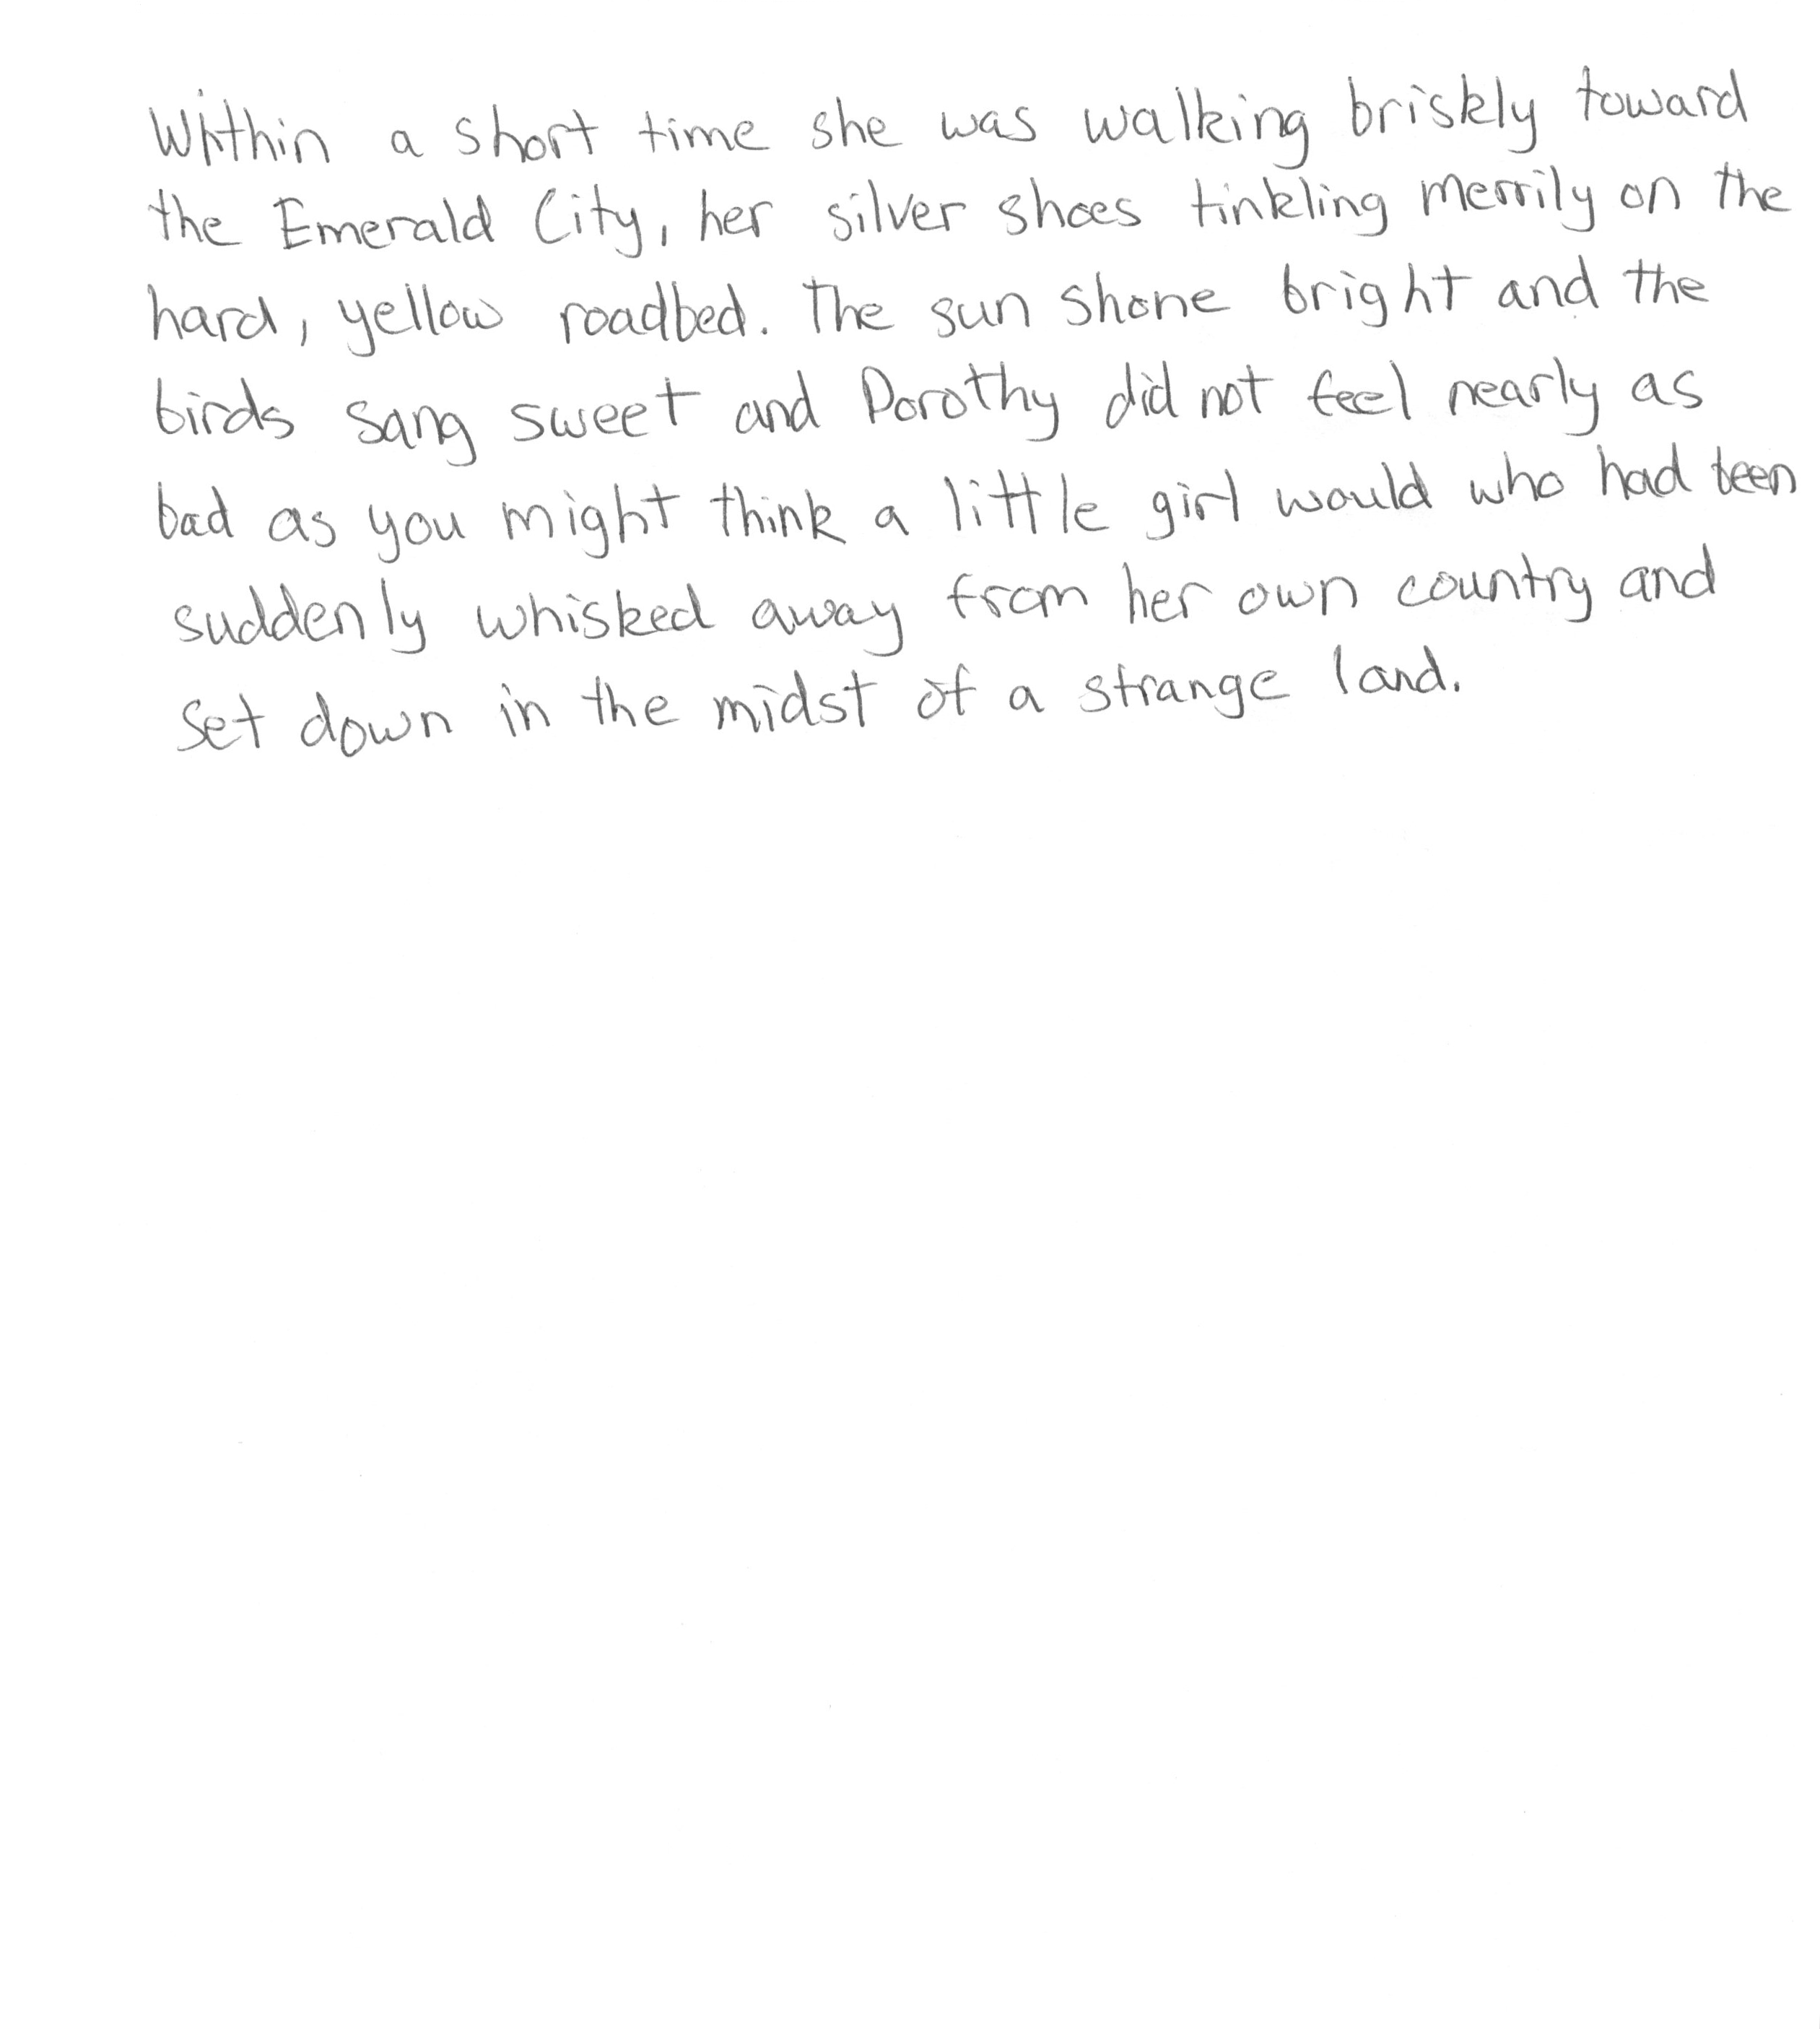 Within a short time she was walking briskly toward
the Emerald City, her silver shoes tinkling merrily on the
hard, yellow roadbed. The sun shone bright and the
birds sang sweet and Dorothy did not feel nearly as
bad as you might think a little girl would who had been
suddenly whisked away from her own country and
set down in the midst of a strange land.